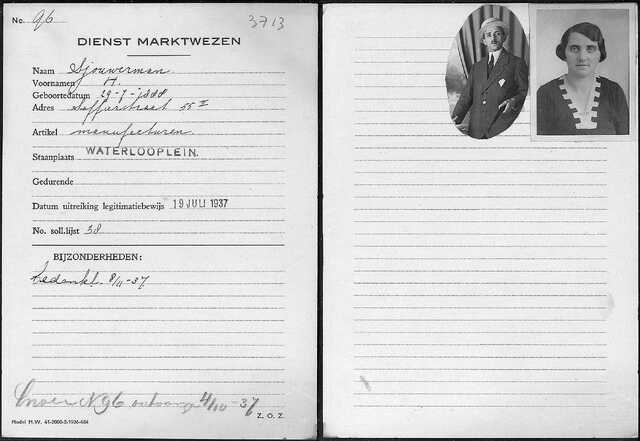 No. 96
3713
DIENST MARKTWEZEN
Naam Sjouwerman
Voornamen H.
Geboortedatum 29-7-1888
Adres Saffierstraat 55 II
Artikel manufacturen
Staanplaats WATERLOOPLEIN.
Gedurende
Datum uitreiking legitimatiebewijs 19 JULI 1937
No. soll.lijst 38
BIJZONDERHEDEN:
bedankt. 8/11-37
No 96 4/10-37
Z. O. Z.
Model M.W. 41-2000-5-1936-684